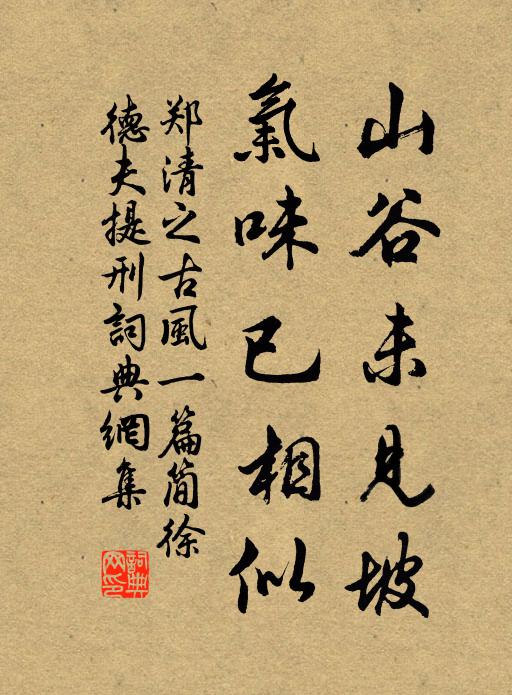 山谷未見坡
氣味已相似
郑清之古風一篇简徐
德夫提刑詞典網集
詞典网印